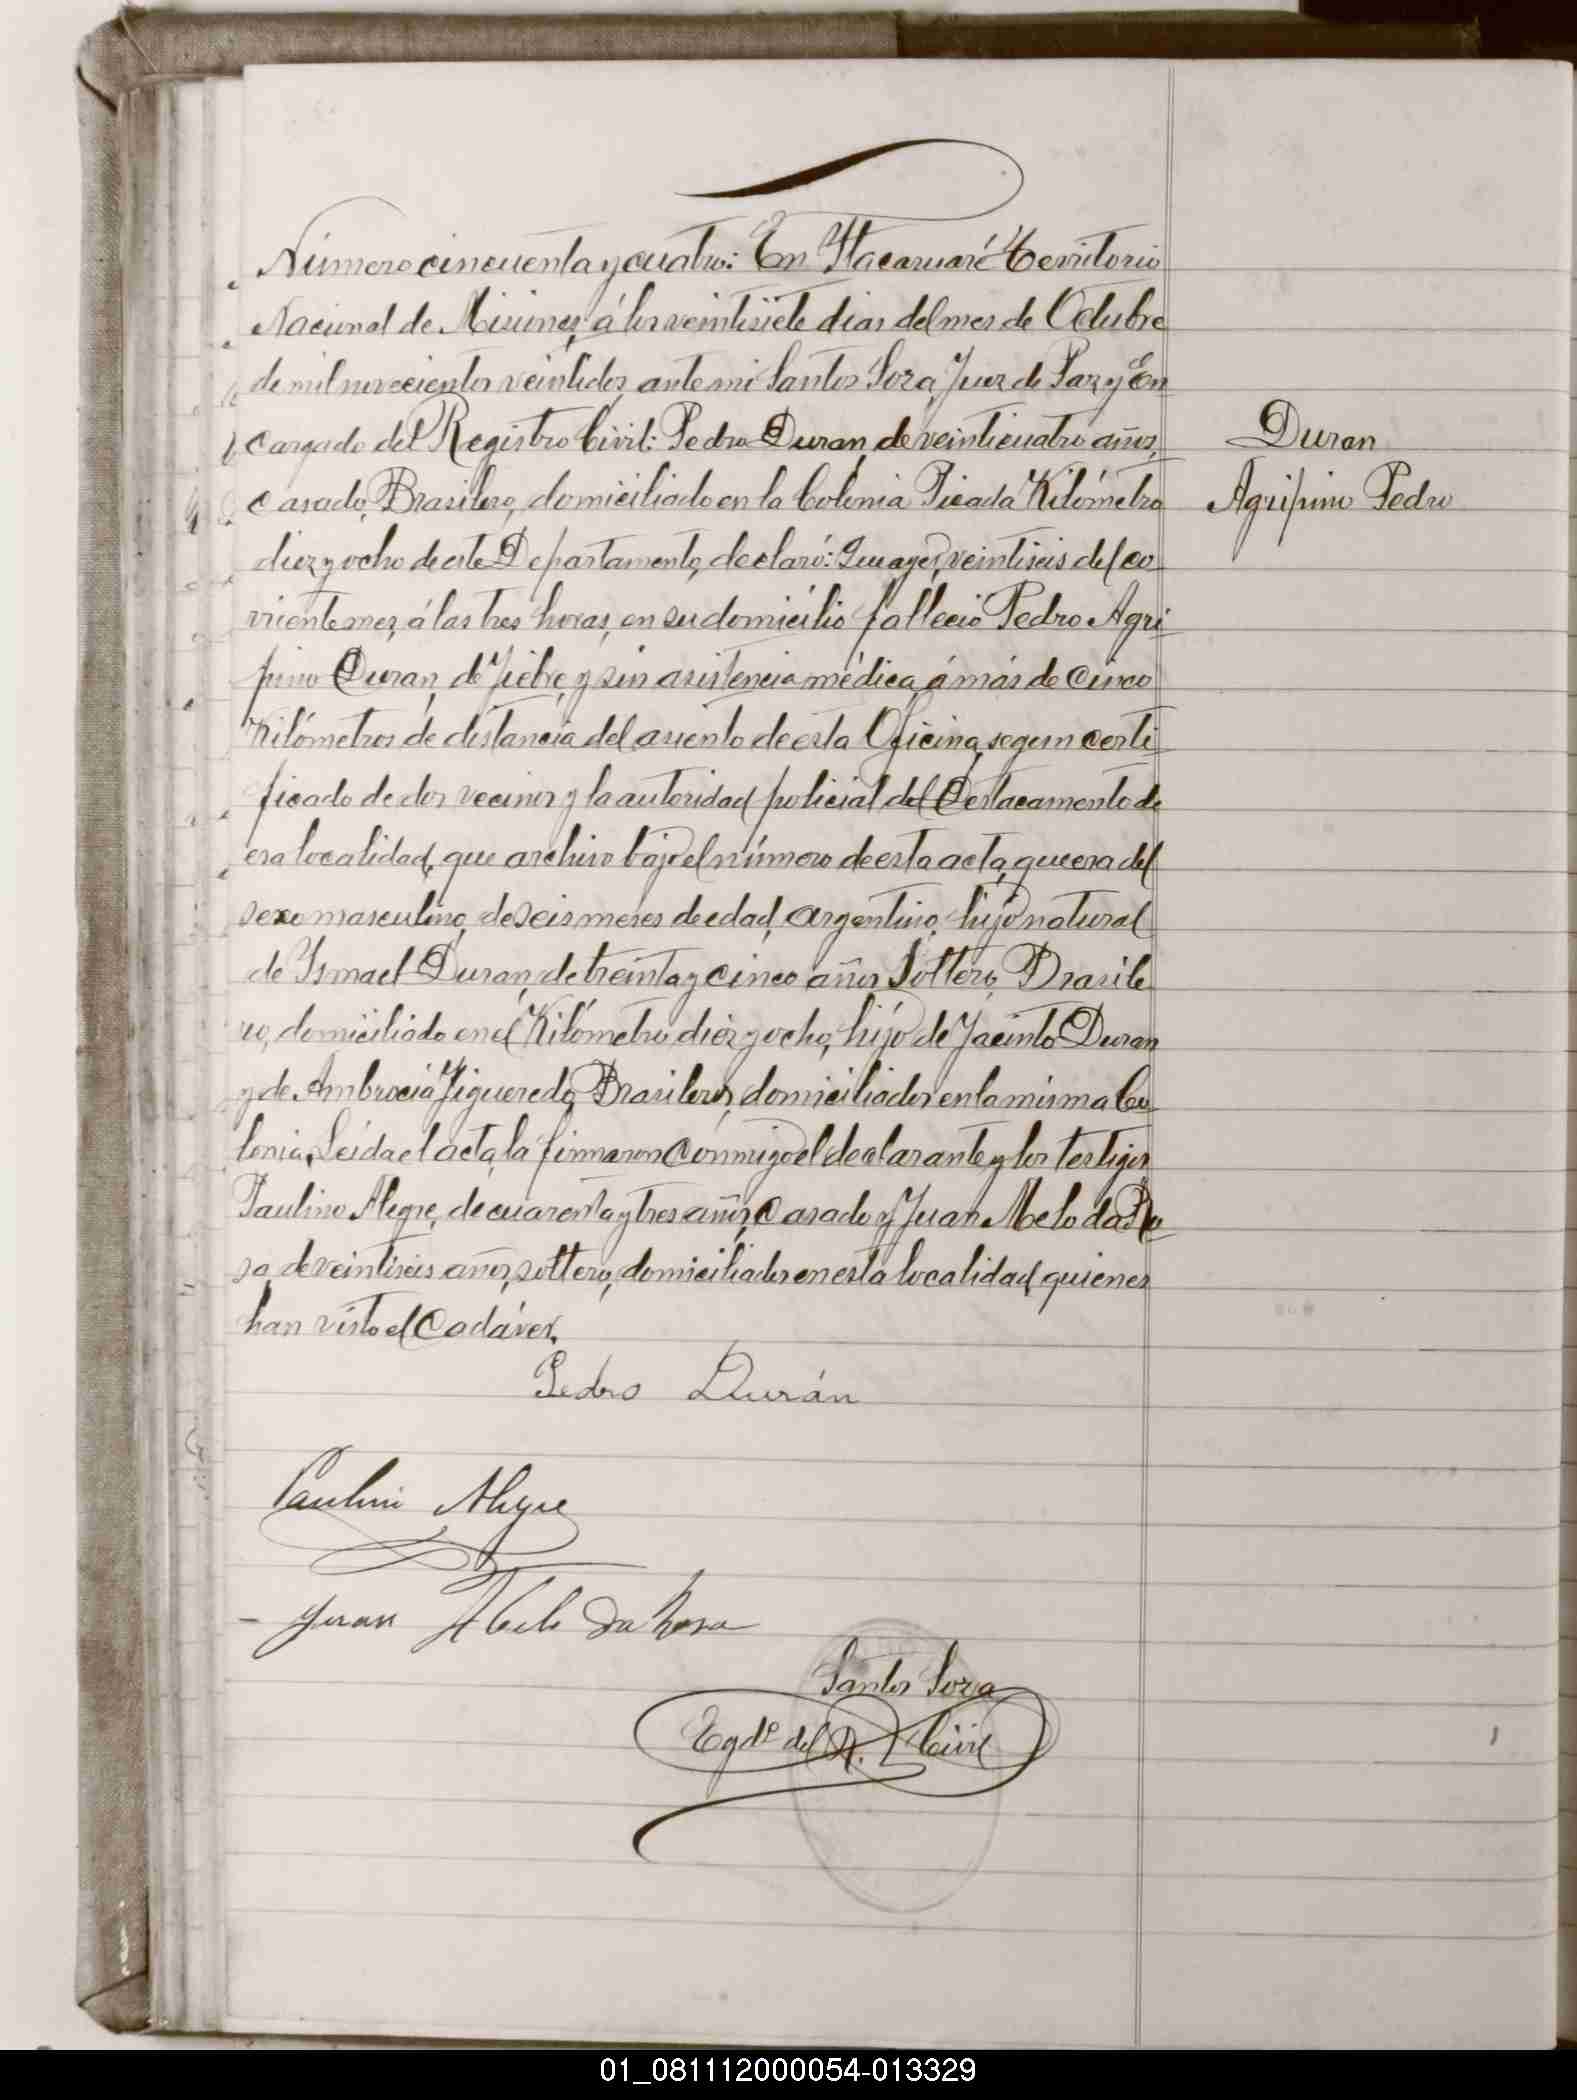 Número cincuenta y cuatro: En Itacaruaré Territorio
Nacional de Misiones, á los veintisiete dias del mes de Octubre
de mil novecientos veintidos, ante mi Santos Soza, Juez de Paz y En
cargado del Registro Civil: Pedro Duran, de veinticuatro años,
casado, Brasilero, domiciliado en la Colonia Picada Kilómetro
diez y ocho de este Departamento, declaró: Que ayer, veintiseis del co
rriente mes, á las tres horas, en su domicilio falleció Pedro Agri
pino Duran, de fiebre, y sin asistencia médica, á más de cinco
Kilómetros de distancia del asiento de esta Oficina, segun certi
ficado de dos vecinos y la autoridad policial del Destacamento de
esa localidad, que archivo bajo el número de esta acta, que era del
sexo masculino, de seis meses de edad, argentino, hijo natural
de Ysmael Duran, de treinta y cinco años, Soltero, Brasile
ro, domiciliado en el Kilómetro diez y ocho, hijo de Jacinto Duran
y de Ambrocia Figueredo, Brasileros, domiciliados en la misma Co
lonia. Leida el acta, la firmaron conmigo el declarante y los testigos
Paulino Alegre, de cuarenta y tres años, Casado y Juan Melo da Ro
sa, de veintiseis años, soltero, domiciliados en esta localidad, quienes
han visto el Cadáver.
Duran
Agripino Pedro
Pedro Durán
Paulino Alegre
Juan Melo da Rosa
Santos Soza
Egdo del R. Civil
01_081112000054-013329